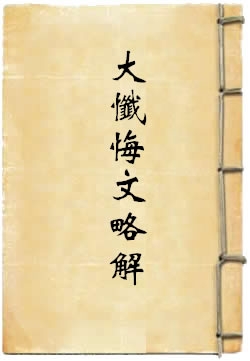 大懺悔文略解